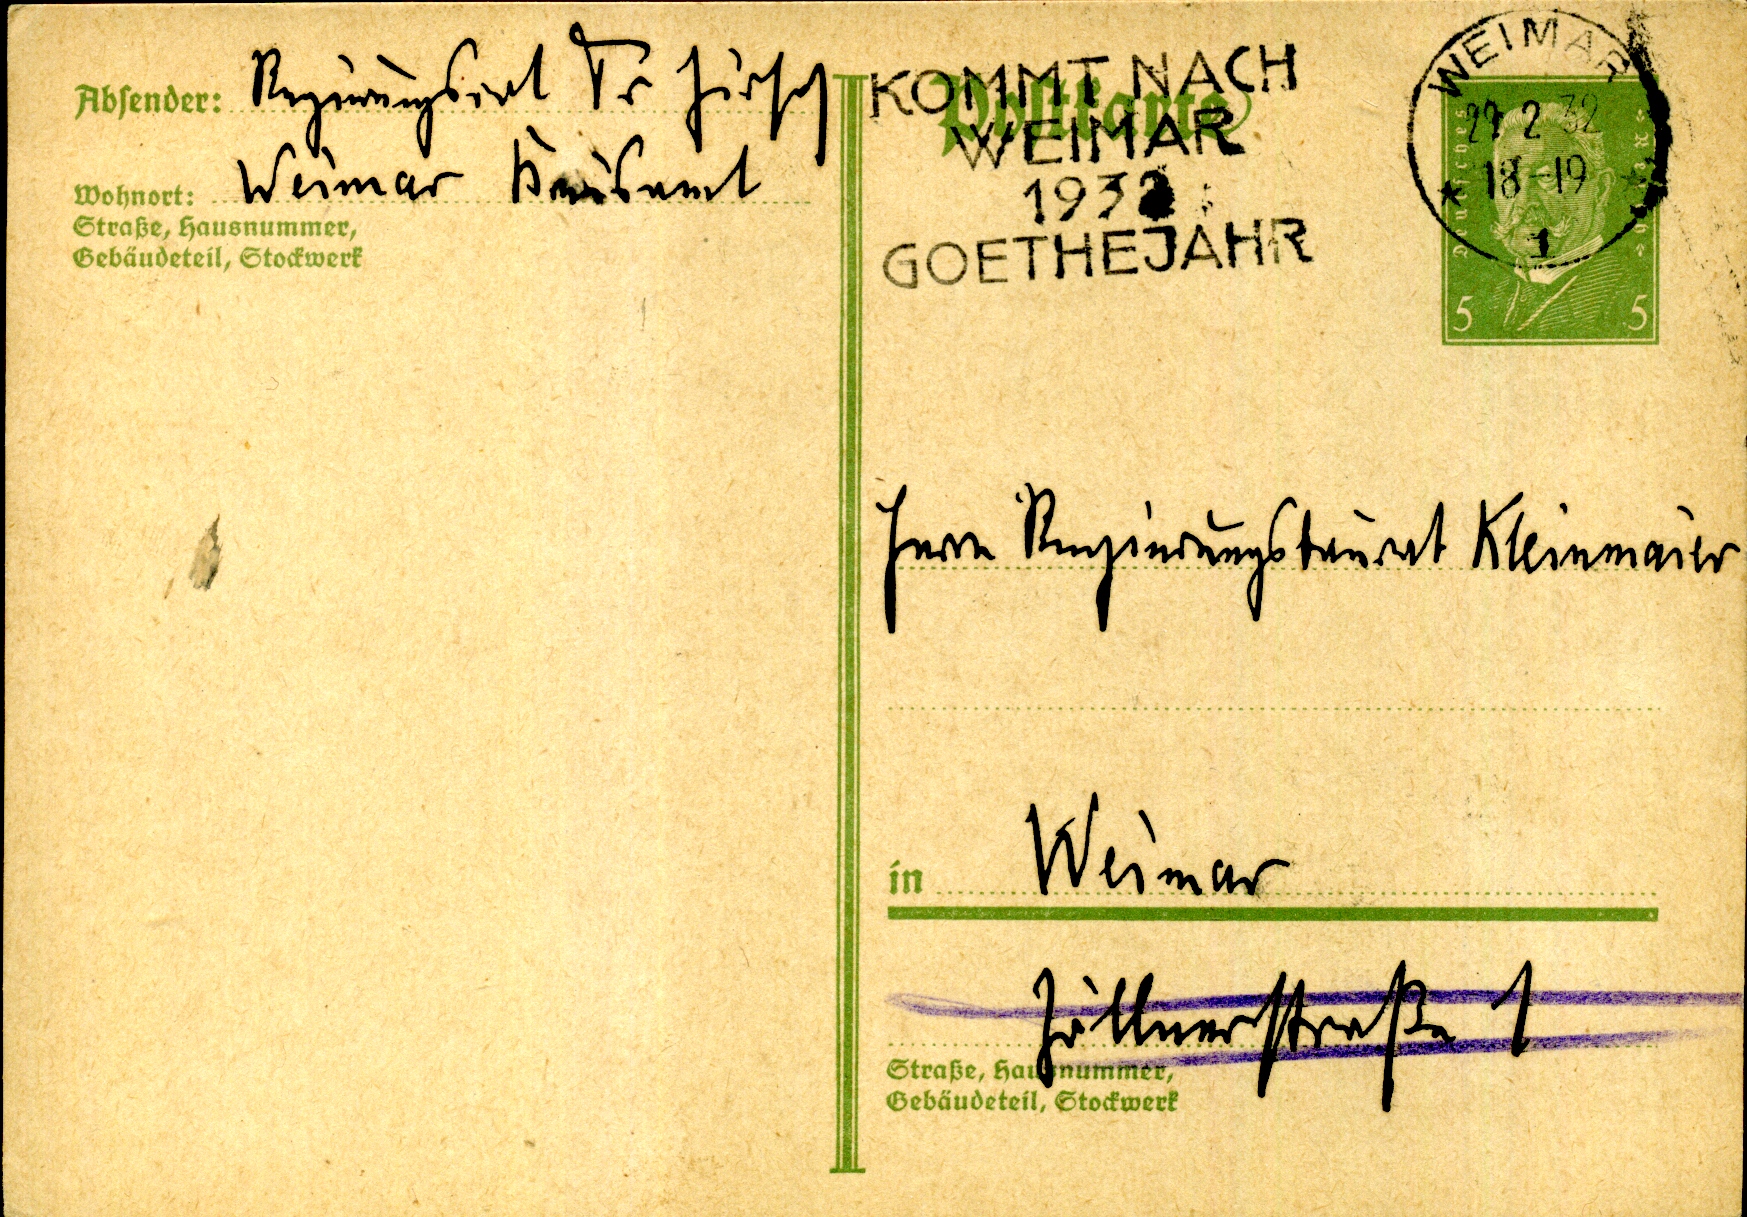 Absender: Regierungsrat Dr Hirsch
Wohnort: Weimar Kreisamt
Straße, Hausnummer,
Gebäudeteil, Stockwerk
Postkarte
KOMMT NACH
WEIMAR
1932
GOETHEJAHR
WEIMAR
29 2 32
18-19
1
Deutsches Reich
5 5
Herrn Regierungsbaurat Kleinmaier
in Weimar
Zöllnerstraße 1
Straße, Hausnummer,
Gebäudeteil, Stockwerk